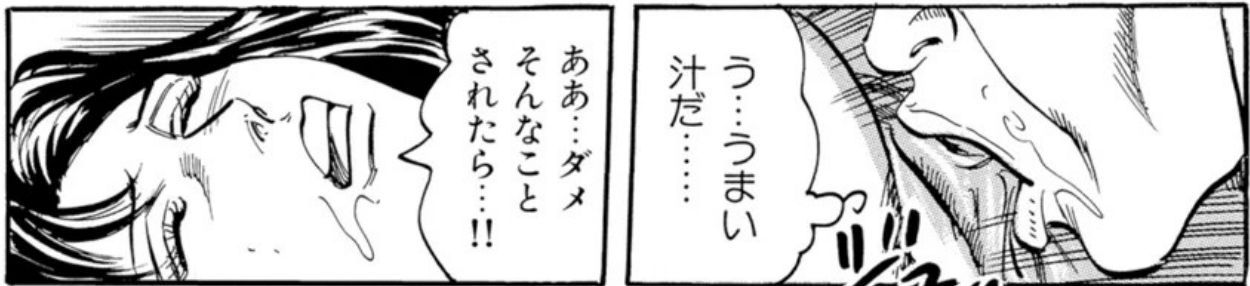 う…うまい
汁だ……
ああ…ダメ
そんなこと
されたら…!!